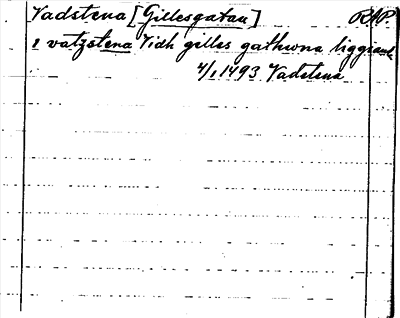 Vadstena [Gillesgatan] RAP.
i vatzstena Vidh gilles gathwna liggiande
4/1 1493 Vadstena